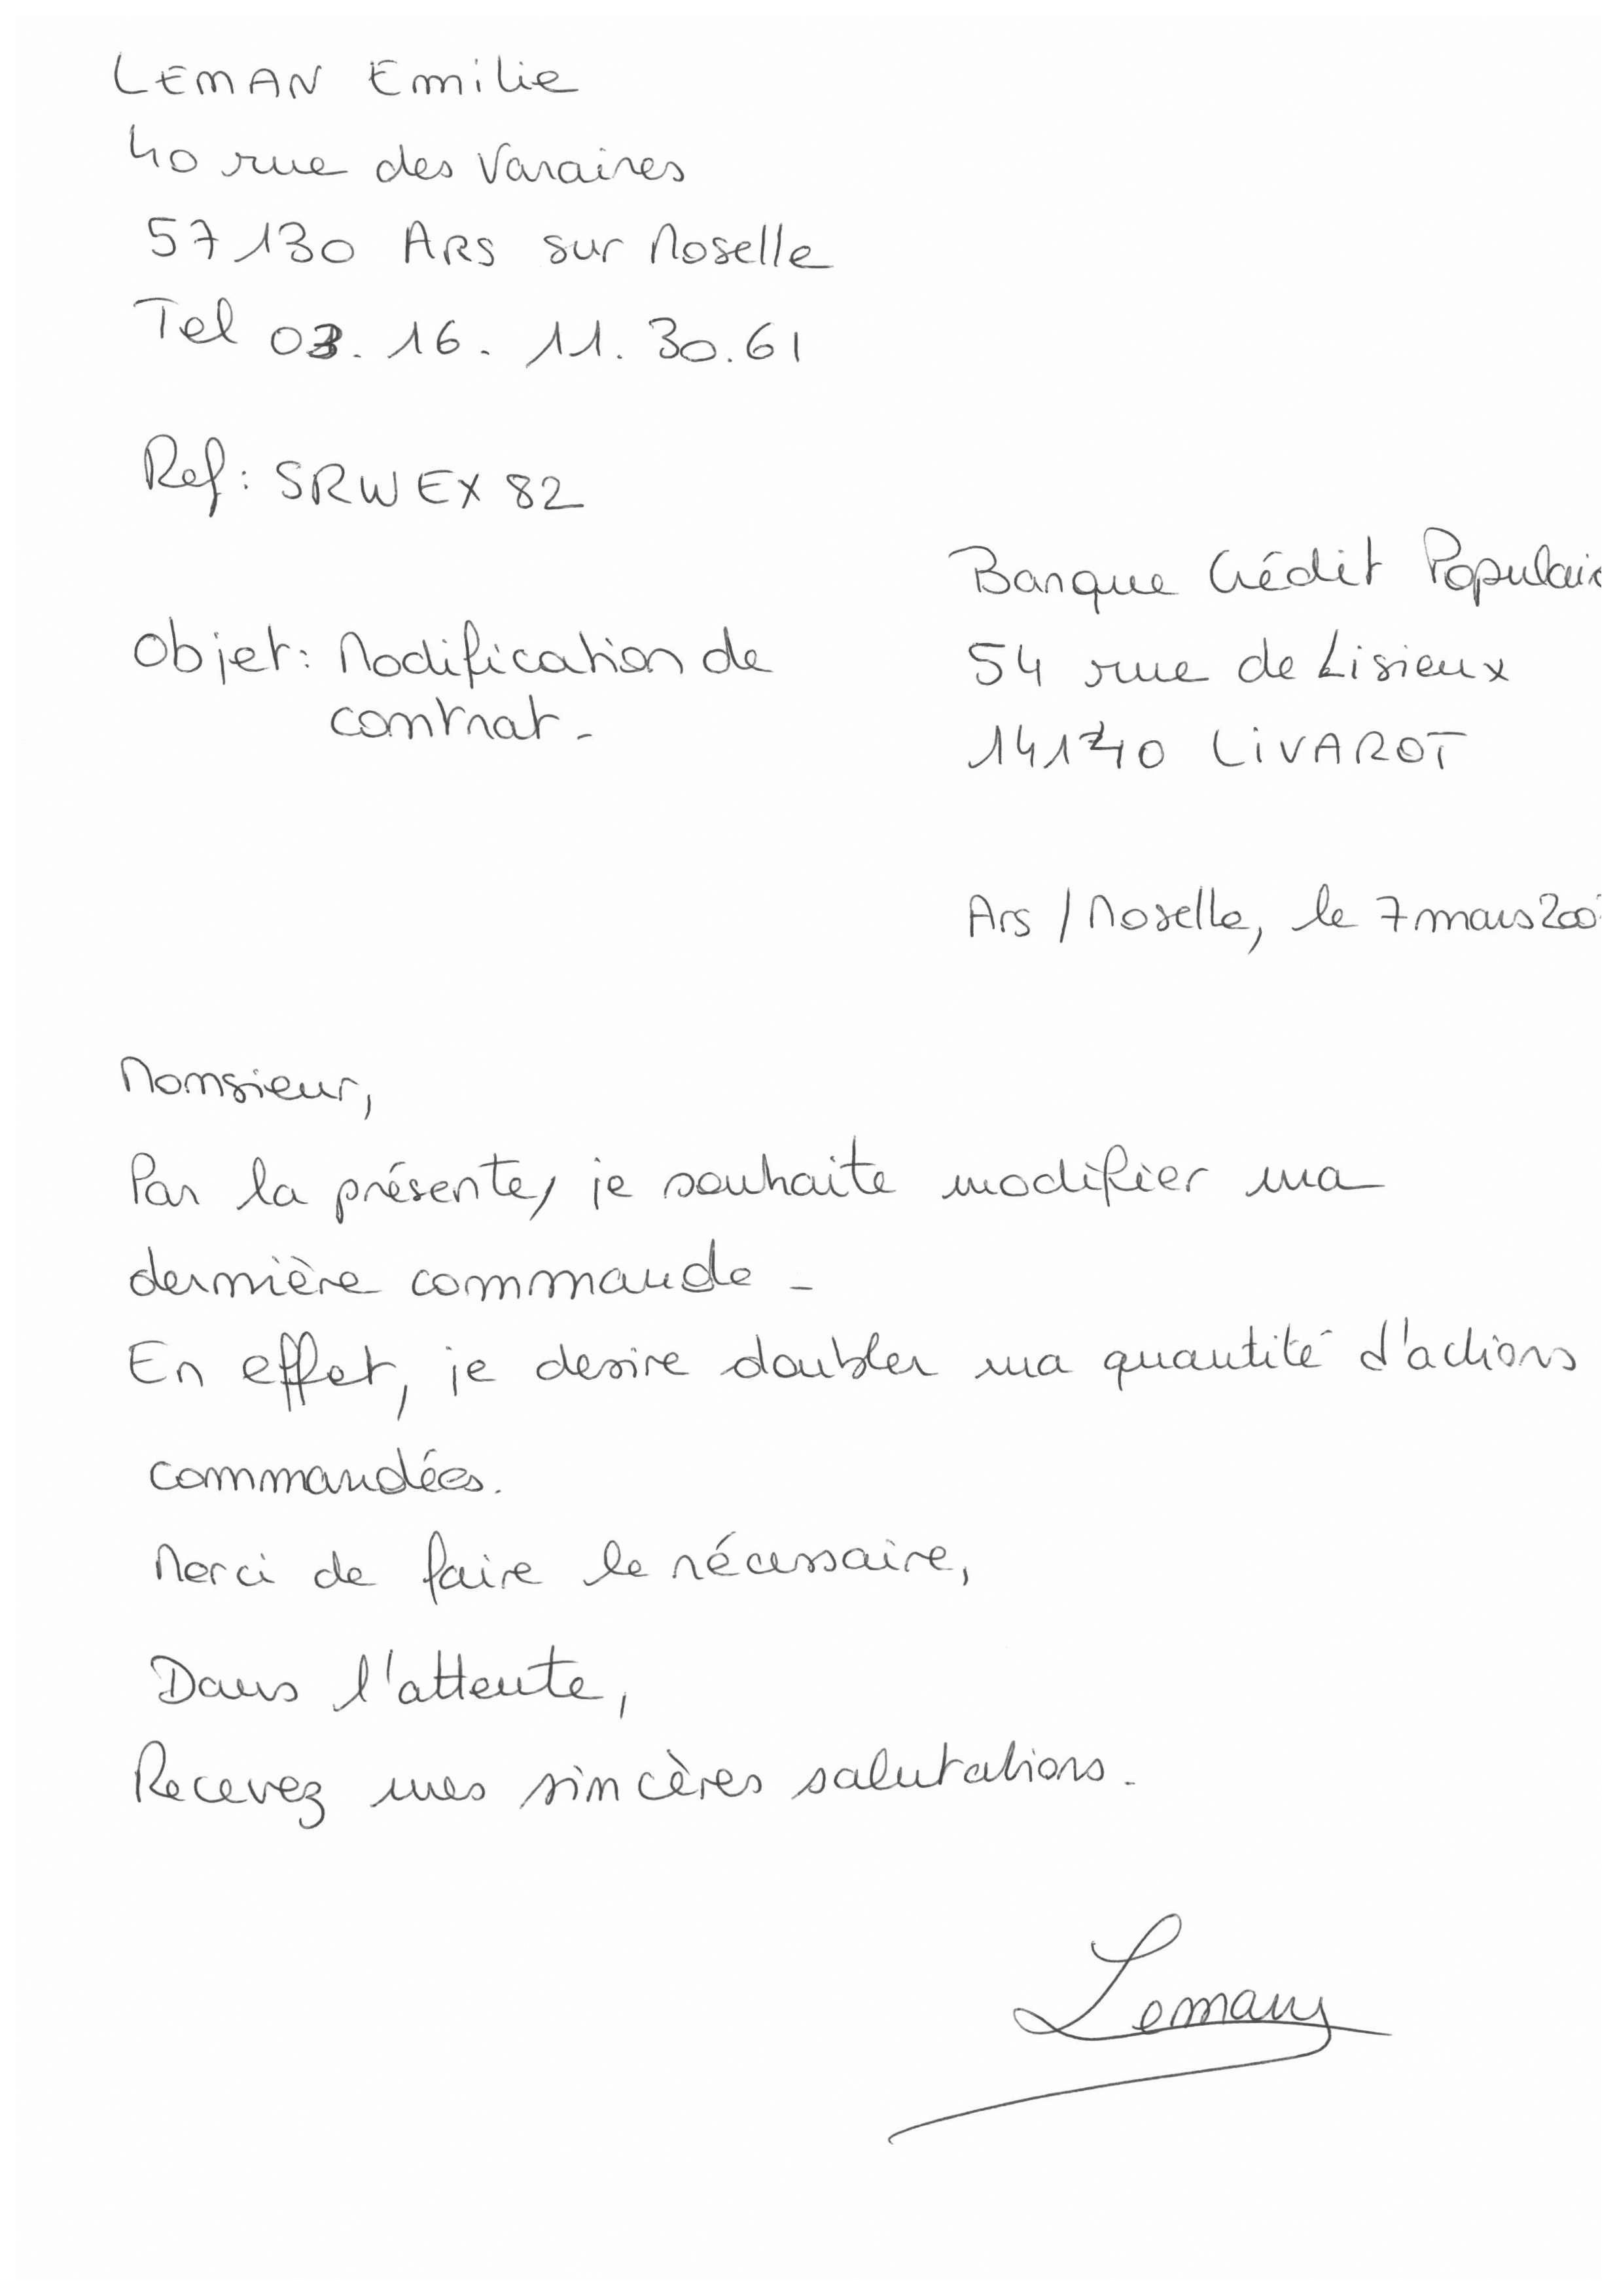 LEMAN Emilie
40 rue des Varaines
57130 ARS sur Moselle
Tel 03.16.11.30.61
Ref: SRWEX82
Banque Crédit Populair
Objet: Modification de
contrat.
54 rue de Lisieux
14140 LiVAROT
Ars / Moselle, le 7 mars 200
Monsieur,
Par la présente, je souhaite modifier ma
dernière commande.
En effet, je desire doubler ma quantité d'actions
commandées.
Merci de faire le nécessaire,
Dans l'attente,
Recevez mes sincères salutations.
Leman